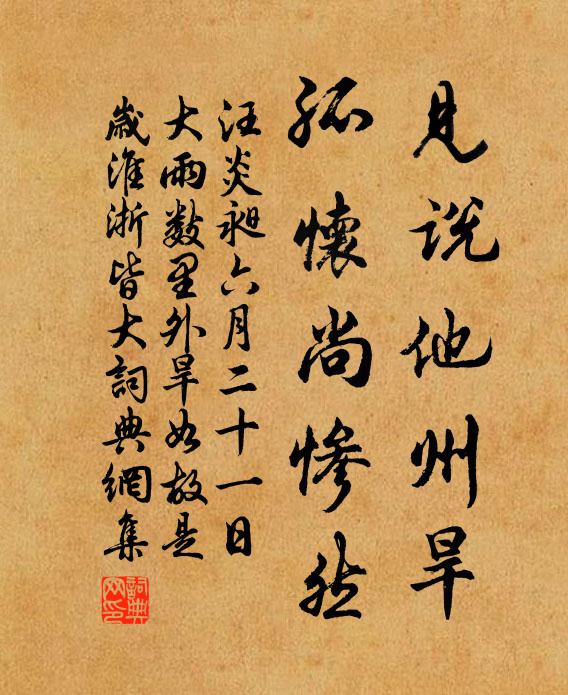 見说他州旱
孤懷尚慘然
汪炎昶六月二十一日
大雨数里外旱如故是
歲淮浙皆大詞典網集
詞典
网印